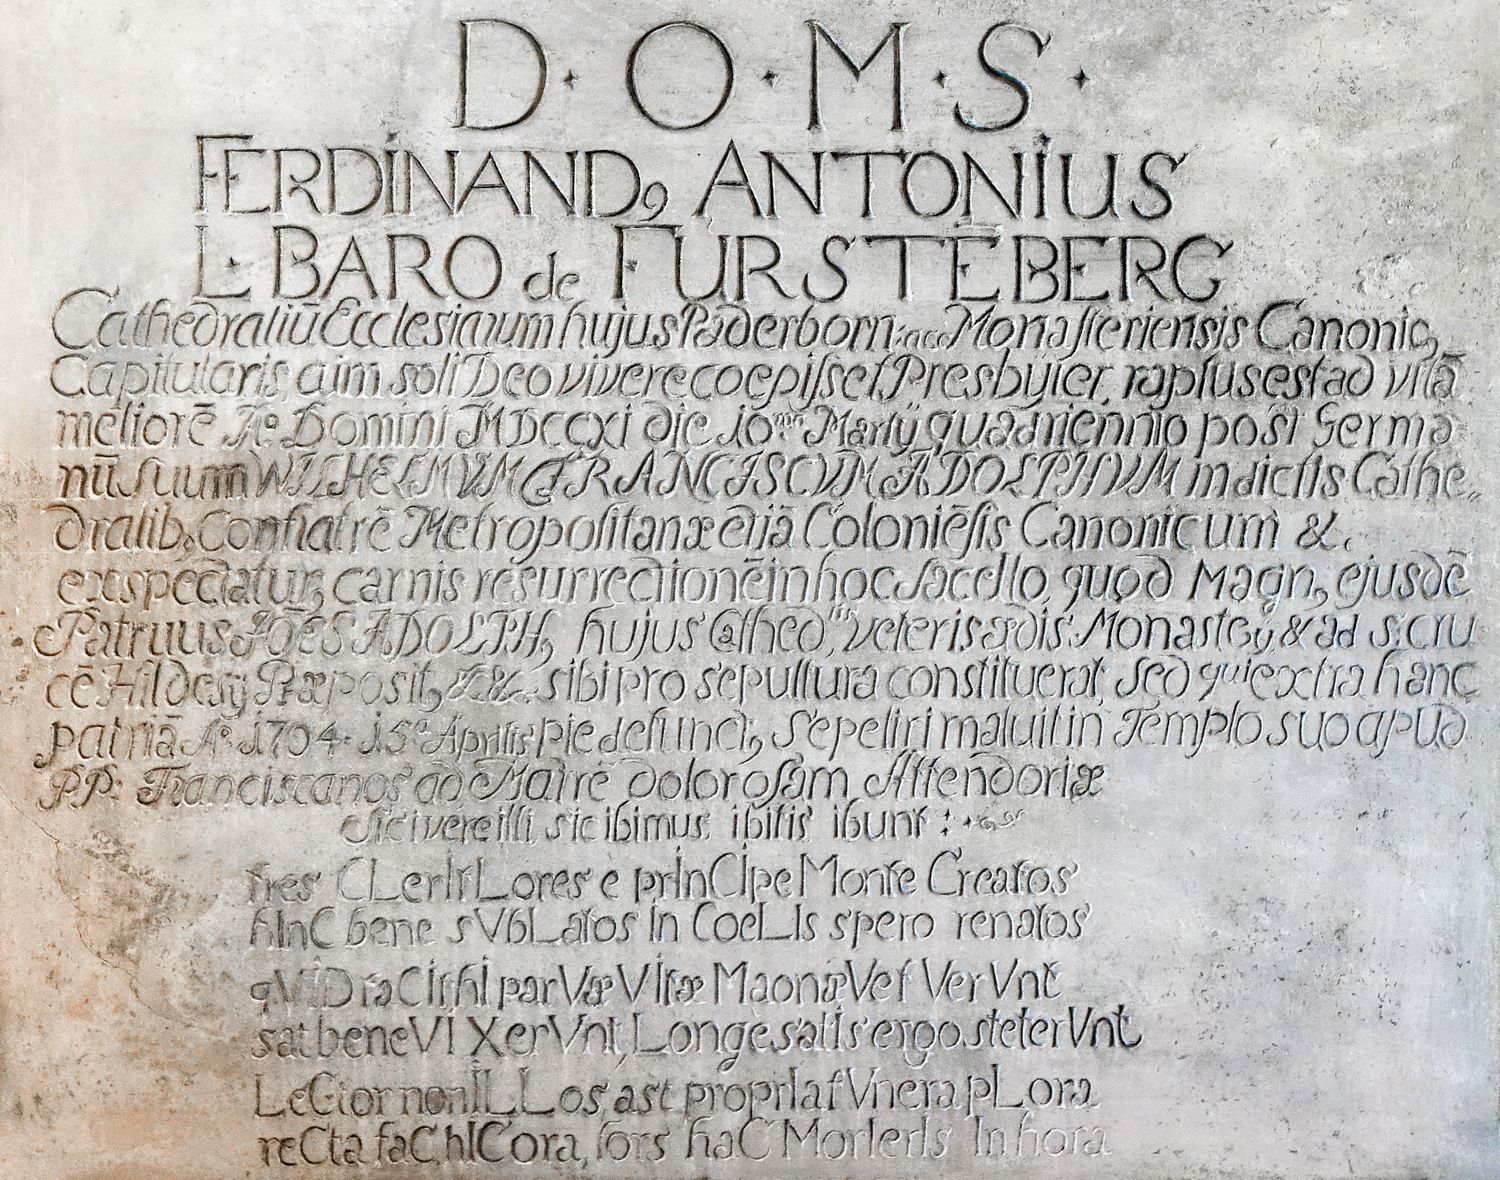 D · O · M · S ·
FERDINANDꝰ ANTONIUS
L. BARO de FURSTEBERG
Cathedraliū Ecclesiarum hujus Paderborn: ac Monasteriensis Canonicꝰ
Capitularis, cum soli Deo vivere coepisset Presbyter, raptus est ad vitā
meliorē Aº Domini MDCCXI die 10mâ Martÿ quadriennio post Germa
nū suum WILHELMVM FRANCISCVM ADOLPHVM in dictis Cathe
dralibꝰ Confratrē Metropolitanæ etiā Coloniēsis Canonicum &.
exspectaturꝰ carnis resurrectionē in hoc sacello, quod Magnꝰ ejusdē
Patruus JOĒS ADOLPHꝰ hujus Cathed: veteris ædis Monastrÿ & ad S: cru
cē Hildesÿ Præpositꝰ &c &. sibi pro sepultura constituerat, sed qui extra hanc
patriā Aº 1704 · 15ª Aprilis pie defunctꝰ sepeliri maluit in Templo suo apud
PP: Franciscanos ad Matrē dolorosam Attendoriæ
Sic ivere illi, sic ibimus, ibitis ibunt :
tres CLerIt Lores e prInCIpe Monte Creatos
hInC bene sVbLatos In CoeLIs spero renatos
qVID faCIt hI parVæ VItæ Maonæ Vef VerVnt
sat bene VIXerVnt, Longe satIs ergo steterVnt
LeCtor non ILLos, ast proprIa fVnera pLora
reCta faC, hIC ora, fors haC MorIerIs In hora